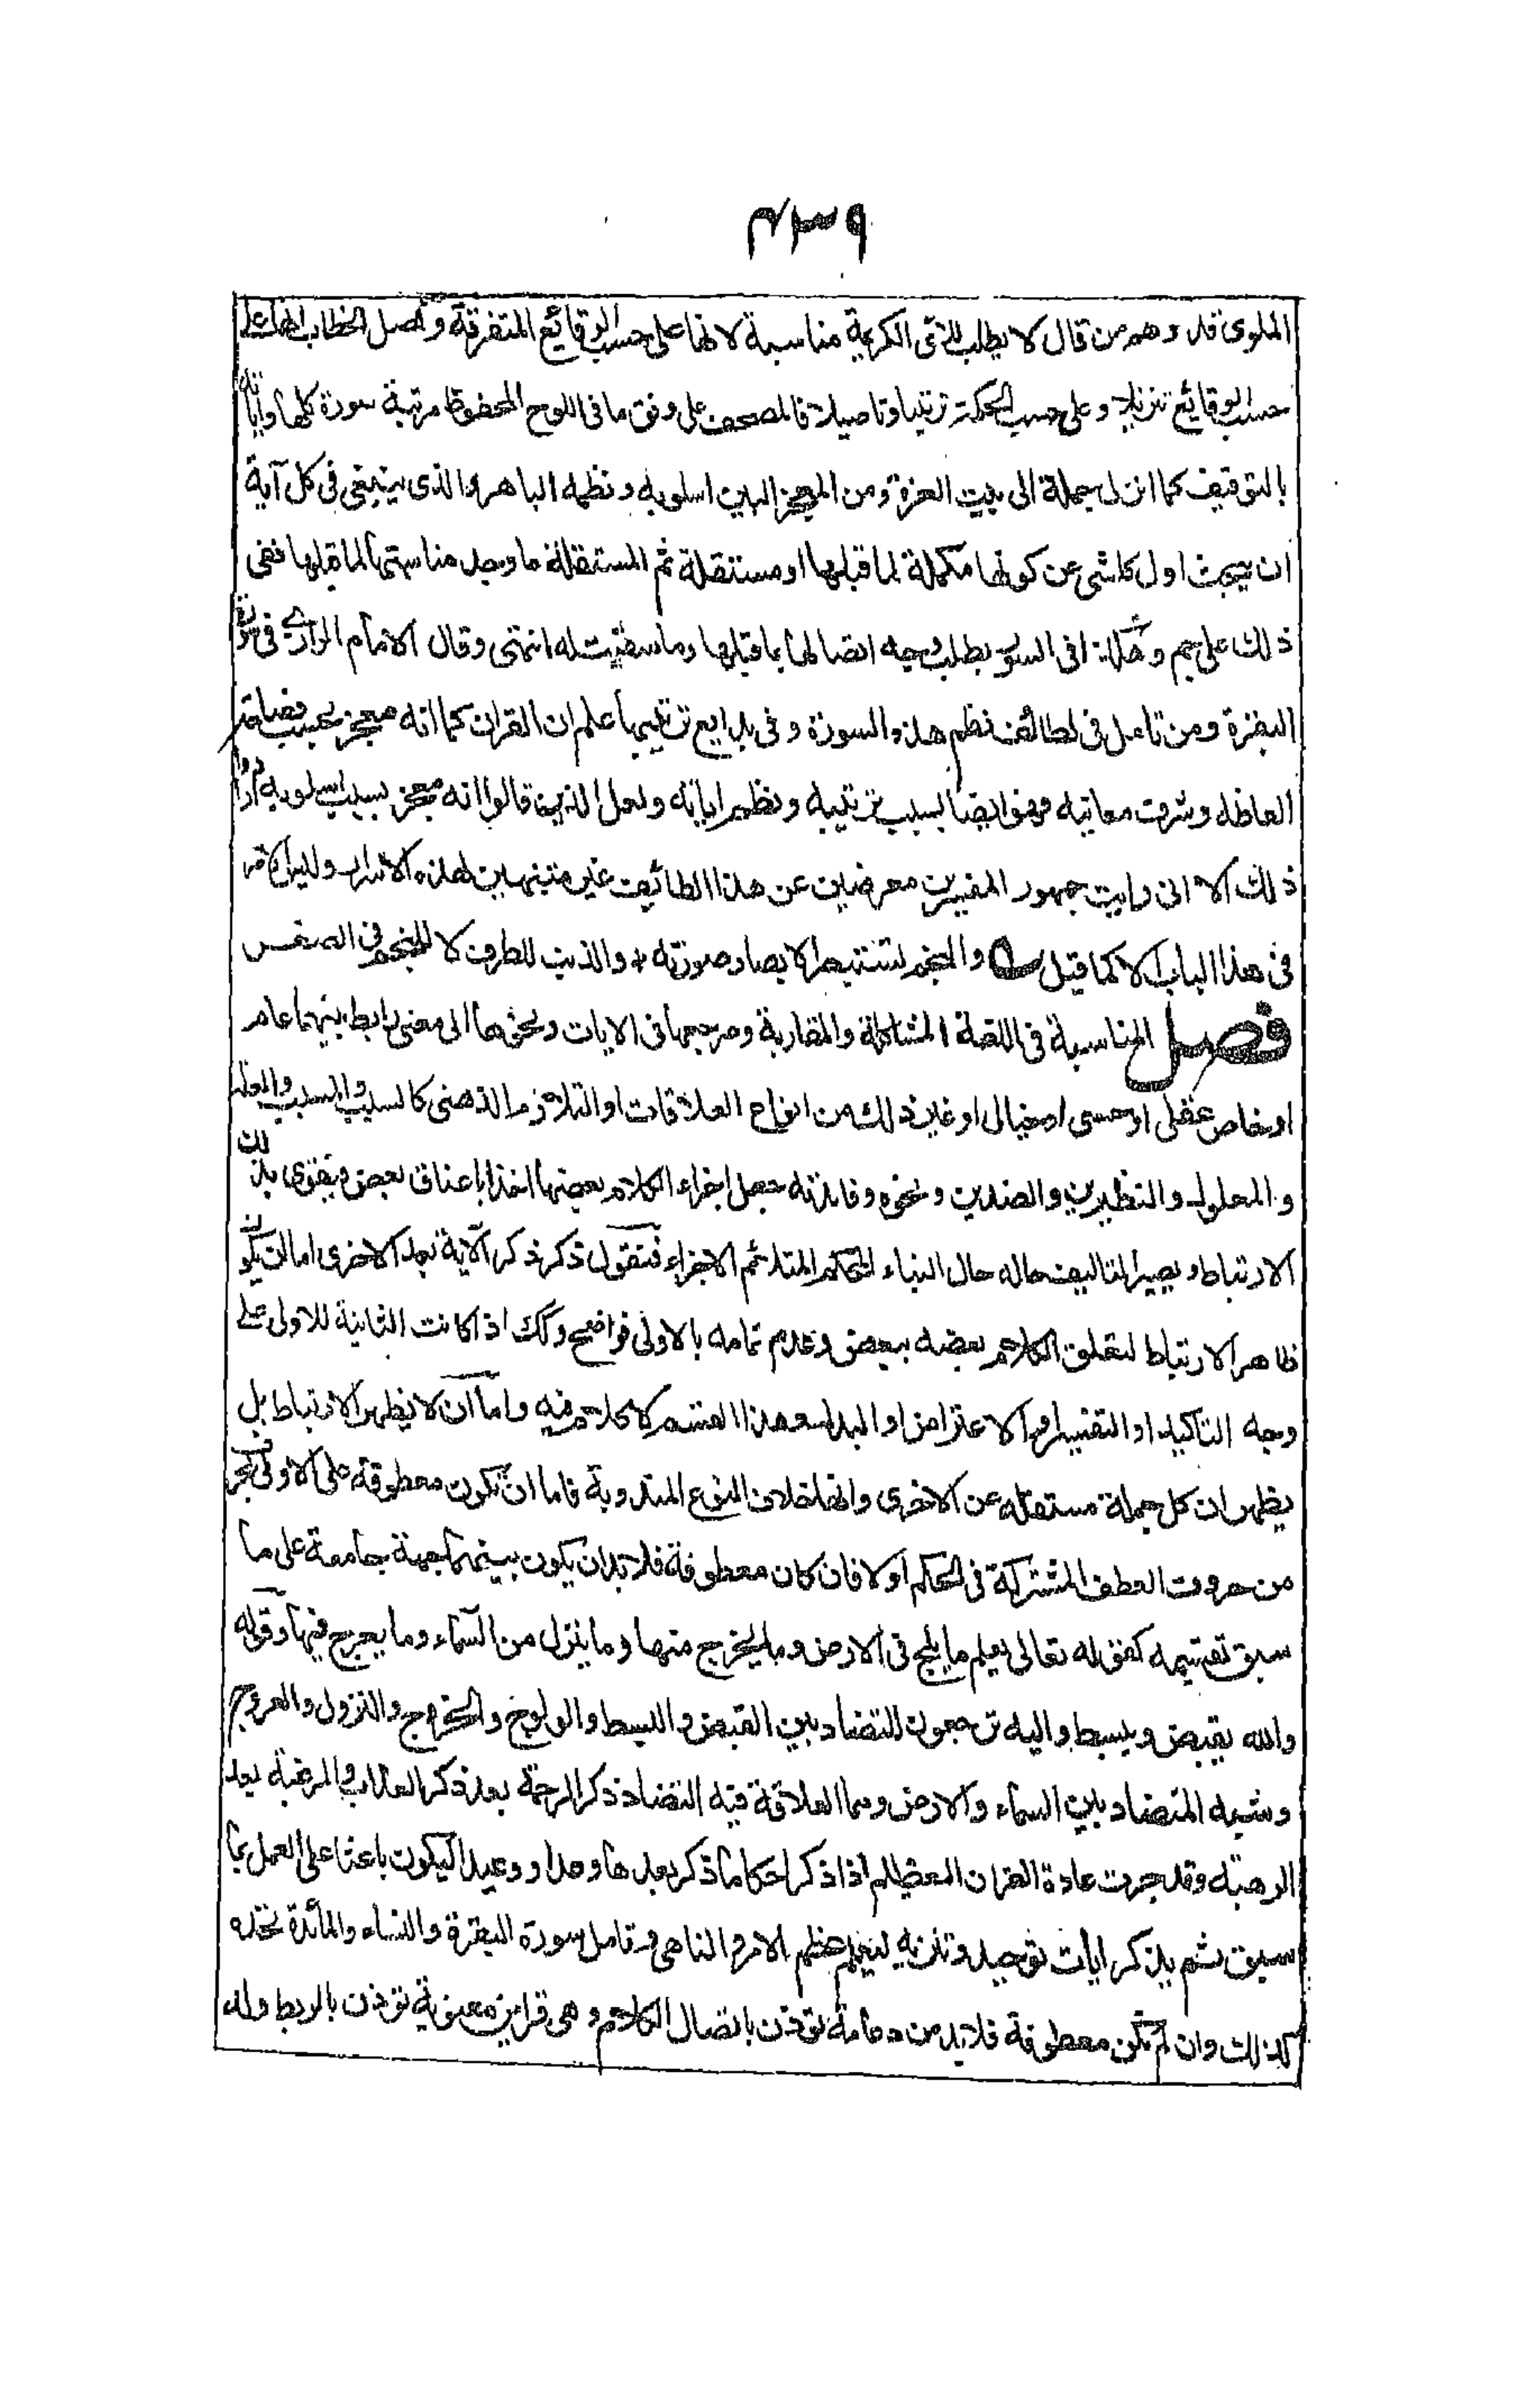 ٤٣٩
الملوی قد وهم من قال لا یطلب للآی الکریمة مناسبة لانها علی حسب الوقائع المتفرقة وفصل الخطاب انها علی
حسب الوقائع تنزیلا وعلی حسب الحکمة ترتیبا وتاصیلا فالمصحف علی وفق ما فی اللوح المحفوظ مرتبة سورة کلها وآیاته
بالتوقیف کما انزل جملة الی بیت العزة ومن المعجز البین اسلوبه ونظمه الباهر والذی ینبغی فی کل آیة
ان یبحث اول کل شئ عن کونها مکملة لما قبلها او مستقلة ثم المستقلة ما وجه مناسبتها لما قبلها ففی
ذلک علم جم وهکذا فی السور یطلب وجه اتصالها بما قبلها وما سیقت له انتهی وقال الامام الرازی فی سورة
البقرة ومن تامل فی لطائف نظم هذه السورة وفی بدایع ترتیبها علم ان القران کما انه معجز بحسب فصاحة
الفاظه وشرف معانیه فهو ایضا بسبب ترتیبه ونظم ایاته ولعل الذین قالوا انه معجز بسبب اسلوبه ارادوا
ذلک الا انی رایت جمهور المفسرین معرضین عن هذا الطائف غیر متنبهین لهذه الاسرار ولیس الامر
فی هذا الباب الا کما قیل والنجم تستصغر الابصار صورته والذنب للطرف لا للنجم فی الصغر
فصل المناسبة فی اللغة المشاکلة والمقاربة ومرجعها فی الایات ونحوها الی معنی رابط بینهما عام
او خاص عقلی او حسی او خیالی او غیر ذلک من انواع العلاقات او التلازم الذهنی کالسبب والمسبب والعلة
والمعلول والنظیرین والضدین ونحوه وفائدته جعل اجزاء الکلام بعضها اخذا باعناق بعض فیقوی بذلک
الارتباط ویصیر التالیف حاله حال البناء المحکم المتلائم الاجزاء فنقول ذکر ذکر الآیة بعد الاخری اما ان یکون
ظاهر الارتباط لتعلق الکلام بعضه ببعض وعدم تمامه بالاولی فواضح وکک اذا کانت الثانیة للاولی علی
وجه التاکید او التفسیر او الاعتراض او البدل وهذا القسم لا کلام فیه واما ان لا یظهر الارتباط بل
یظهر ان کل جملة مستقله عن الاخری وانها خلاف النوع المبدو به فاما ان تکون معطوفة علی الاولی بحرف
من حروف العطف المشترکة فی الحکم او لا فان کان معطوفة فلا بد ان یکون بینهما جهة جامعة علی ما
سبق تقسیمه کقوله تعالی یعلم ما یلج فی الارض وما یخرج منها وما ینزل من السماء وما یعرج فیها وقوله
والله یقبض ویبسط والیه ترجعون للتضاد بین القبض والبسط والولوج والخروج والنزول والعروج
وشبه المتضاد بین السماء والارض ومما العلاقة فیه التضاد ذکر الرحمة بعد ذکر العذاب والرغبة بعد
الرهبة وقد جرت عادة القران العظیم اذا ذکر احکاما ذکر بعدها وعدا ووعیدا لیکون باعثا علی العمل بما
سبق ثم یذکر ایات توحید وتنزیه لیعلم عظم الامر والناهی وتامل سورة البقرة والنساء والمائدة تجده
کذلک وان لم تکن معطوفة فلا بد من دعامة تؤذن باتصال الکلام وهی قراین معنویة تؤذن بالربط وله